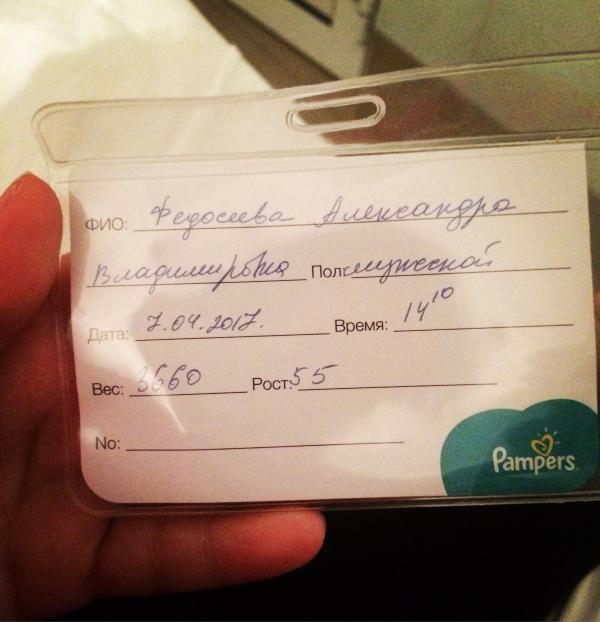 ФИО: Федосеева Александра
Владимировна Пол: мужской
Дата: 7.04.2017. Время: 14¹⁰
Вес: 3660 Рост: 55
No:
Pampers